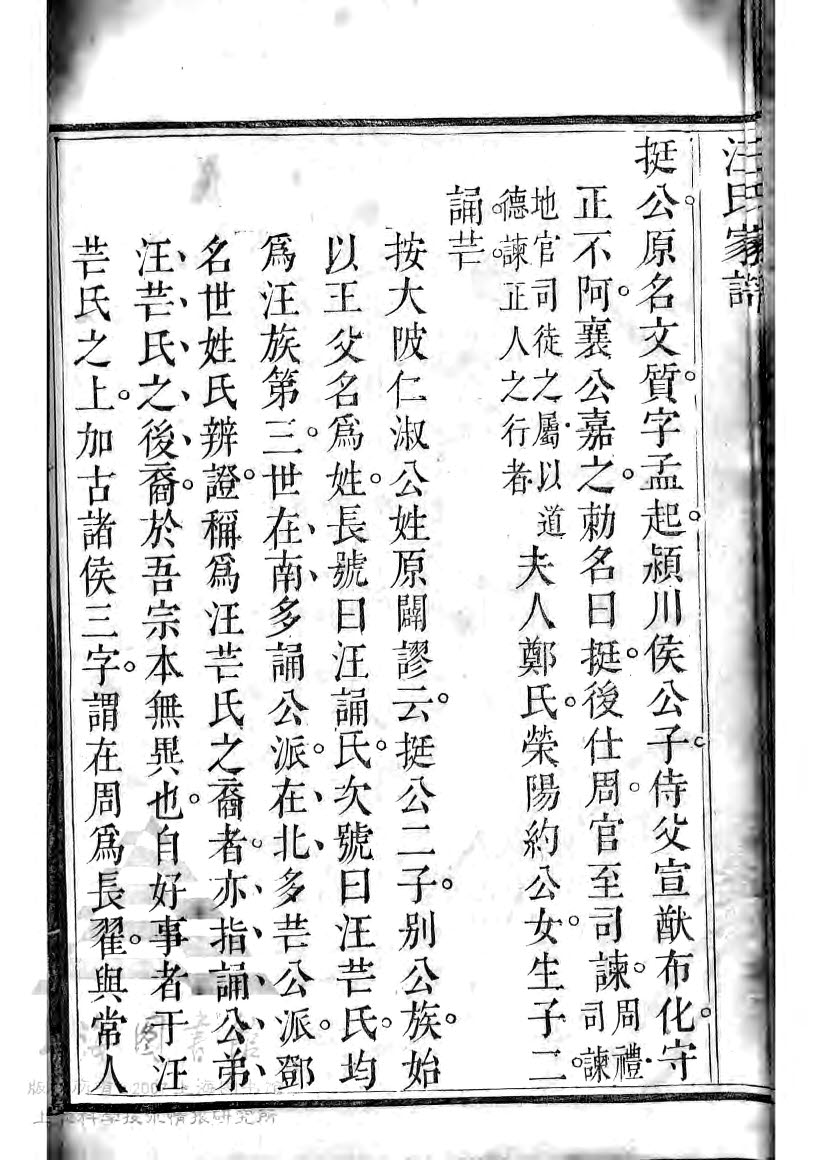 汪氏家譜
挺公。原名文質。字孟起。潁川侯公子。侍父宣猷布化。守
正不阿。襄公嘉之。勅名曰挺。後仕周。官至司諫。周禮司諫。
地官司徒之屬。以道
德。諫正人之行者
夫人鄭氏。榮陽約公女。生子二。
誦。芒。
按大陂仁淑公姓原闢謬云。挺公二子。别公族。始
以王父名爲姓。長號曰汪誦氏。次號曰汪芒氏。均
爲汪族第三世。在南多誦公派。在北多芒公派。鄧
名世姓氏辨證。稱爲汪芒氏之裔者。亦指誦公弟
汪芒氏之後裔。於吾宗本無異也。自好事者于汪
芒氏之上。加古諸侯三字。謂在周爲長翟。與常人